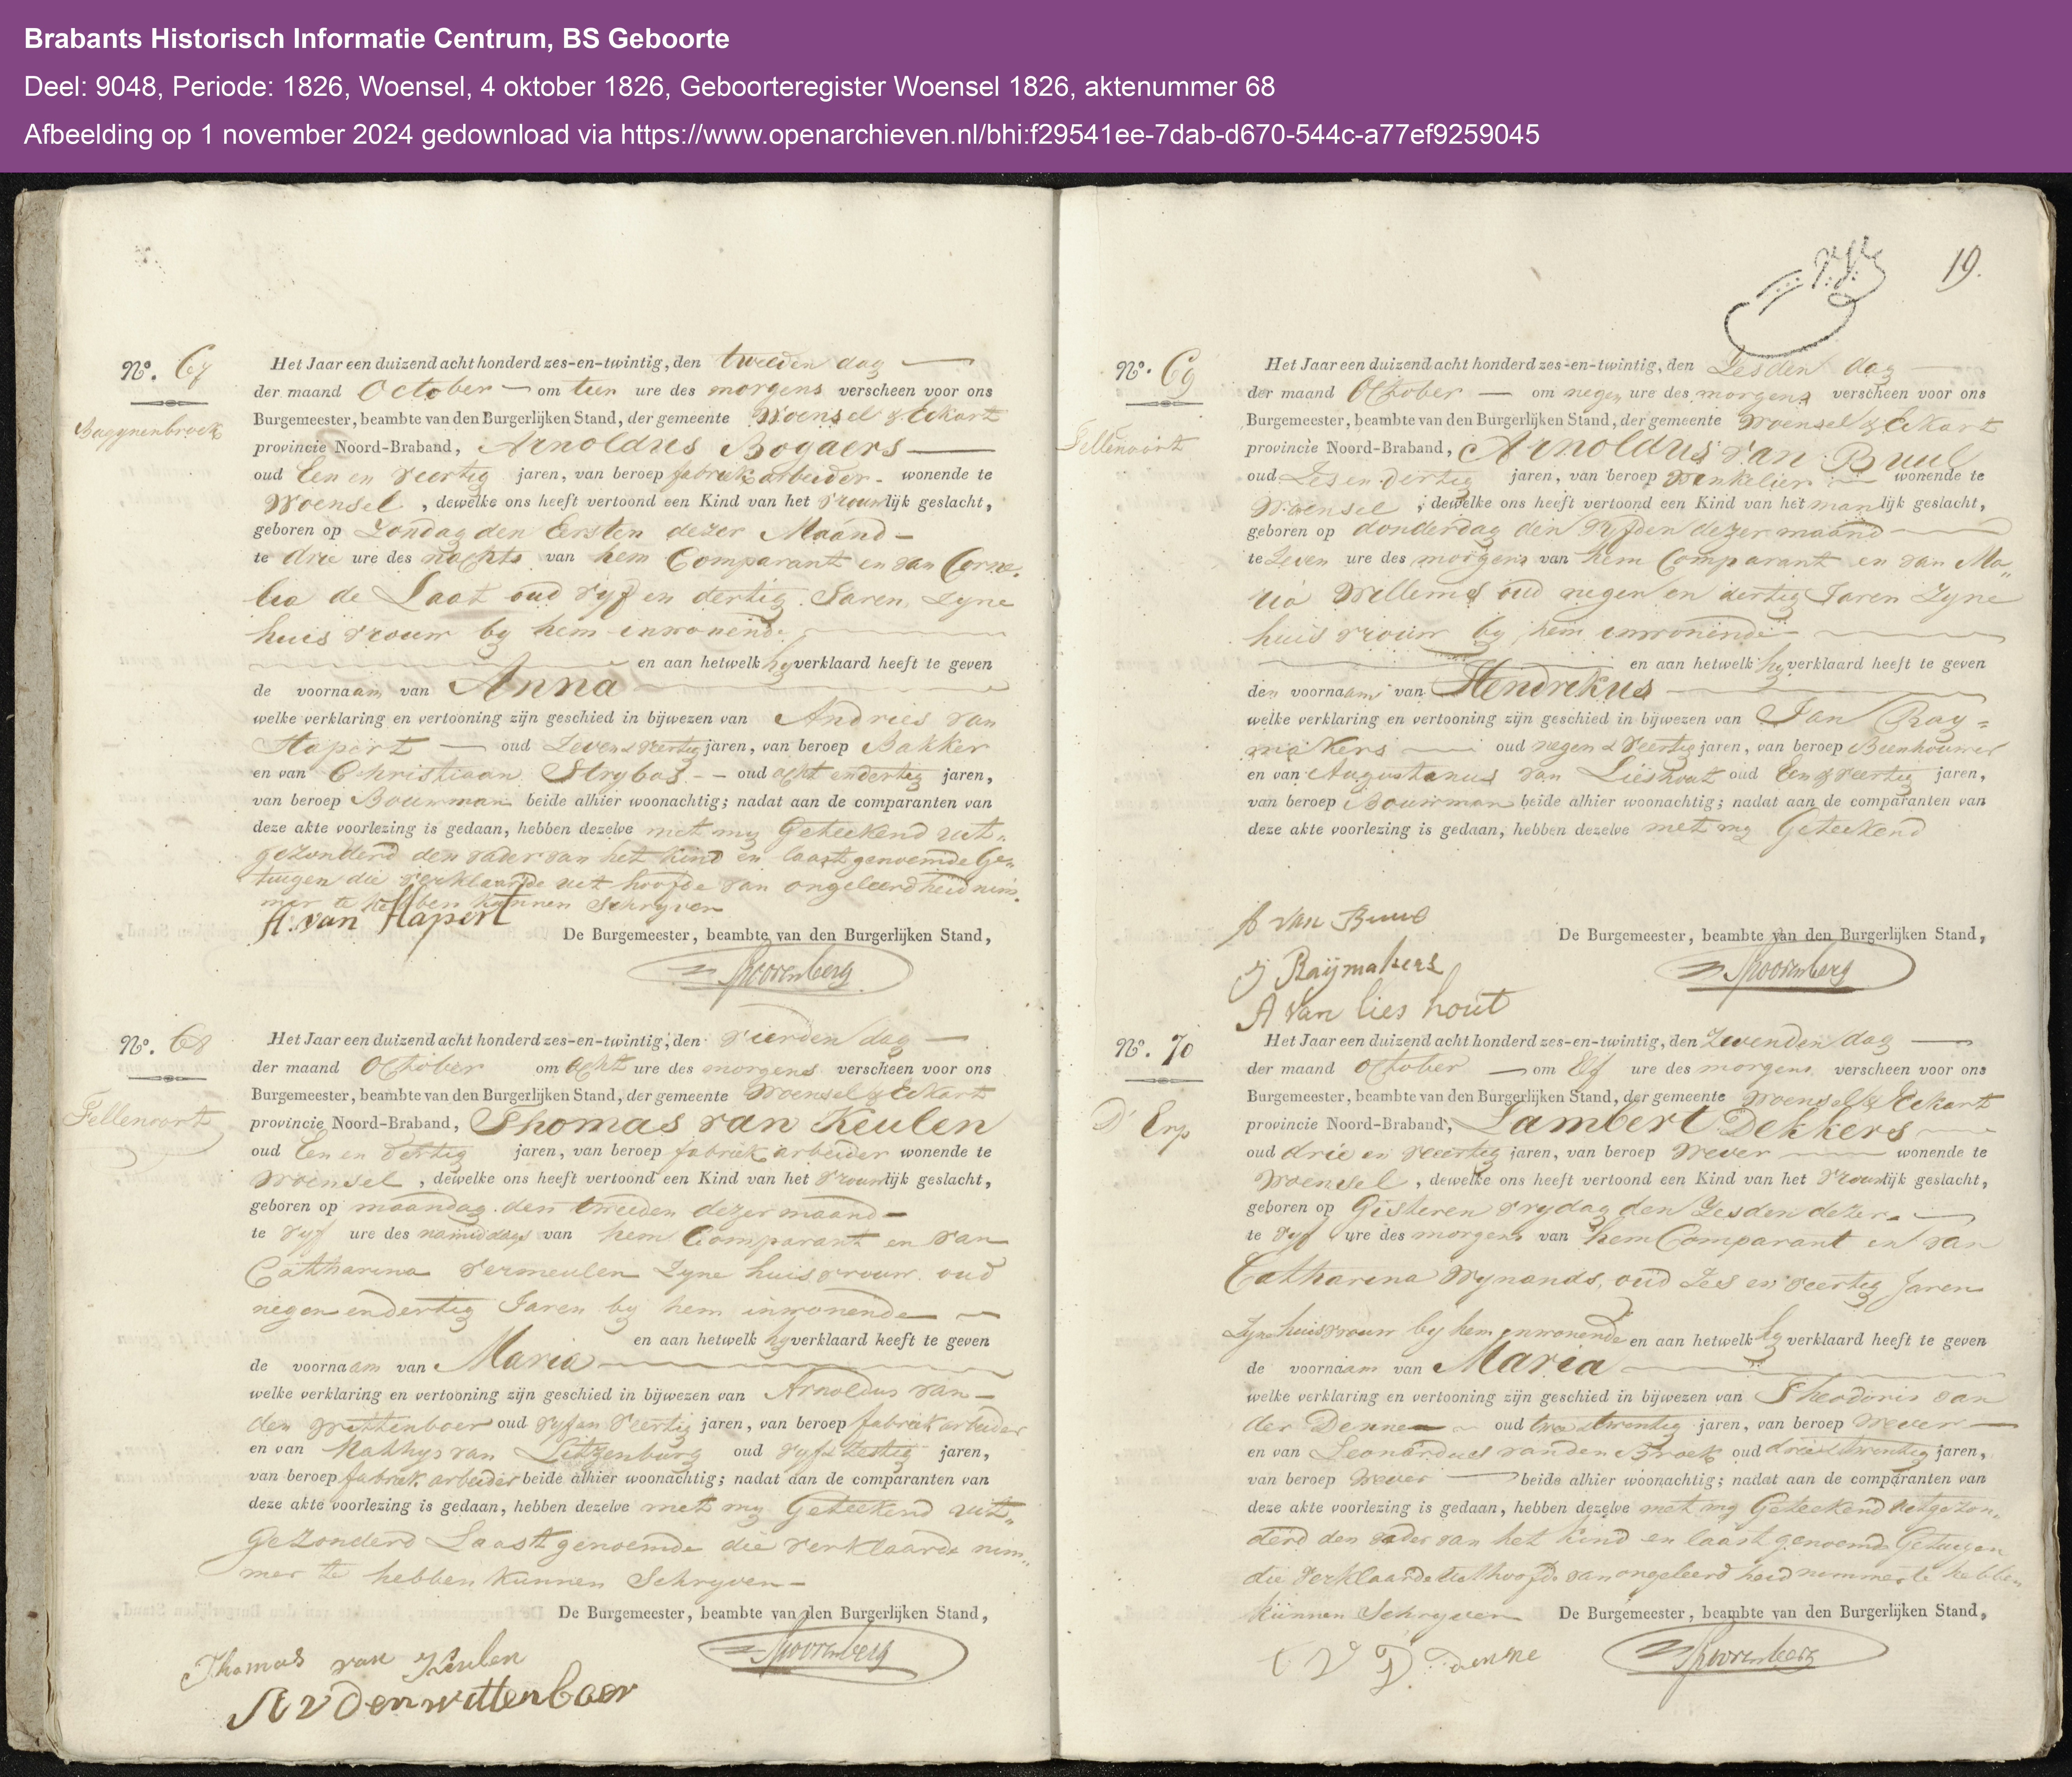 Brabants Historisch Informatie Centrum, BS Geboorte
Deel: 9048, Periode: 1826, Woensel, 4 oktober 1826, Geboorteregister Woensel 1826, aktenummer 68
Afbeelding op 1 november 2024 gedownload via https://www.openarchieven.nl/bhi:f29541ee-7dab-d670-544c-a77ef9259045
No. 67
Bagynenbroek
Het Jaar een duizend acht honderd zes-en-twintig, den tweeden dag
der maand October om tien ure des morgens verscheen voor ons
Burgemeester, beambte van den Burgerlijken Stand, der gemeente Woensel & Eckart
provincie Noord-Braband, Arnoldus Bogaers
oud Een en Veertig jaren, van beroep fabriek arbeider wonende te
Woensel, dewelke ons heeft vertoond een Kind van het Vrouwlijk geslacht,
geboren op Zondag den Eersten dezer Maand
te drie ure des nachts van hem Comparant en van Corne-
lia de Laat oud Vyf en dertig Jaren, Zyne
huisvrouw by hem inwonende
en aan hetwelk hy verklaard heeft te geven
de voornaam van Anna
welke verklaring en vertooning zijn geschied in bijwezen van Andries van
Hapert oud Zeven & Veertig jaren, van beroep Bakker
en van Christiaan Strybos oud acht en dertig jaren,
van beroep Bouwman beide alhier woonachtig; nadat aan de comparanten van
deze akte voorlezing is gedaan, hebben dezelve met my Geteekend uit-
gezonderd den vader van het kind en laast genoemde Ge-
tuigen die verklaarde uit hoofde van ongeleerdheid nim-
mer te hebben kunnen Schryven
A. van Hapert
De Burgemeester, beambte van den Burgerlijken Stand,
Spoorenberg
No. 68
Fellenoort
Het Jaar een duizend acht honderd zes-en-twintig, den vierden dag
der maand October om acht ure des morgens verscheen voor ons
Burgemeester, beambte van den Burgerlijken Stand, der gemeente Woensel & Eckart
provincie Noord-Braband, Thomas van Keulen
oud Een en dertig jaren, van beroep fabriek arbeider wonende te
Woensel, dewelke ons heeft vertoond een Kind van het Vrouwlijk geslacht,
geboren op maandag den tweeden dezer maand
te vyf ure des namiddags van hem Comparant en van
Catharina Vermeulen Zyne huisvrouw oud
negen en dertig Jaren by hem inwonende
en aan hetwelk hy verklaard heeft te geven
de voornaam van Maria
welke verklaring en vertooning zijn geschied in bijwezen van Arnoldus van
den Wittenboer oud vyf en Veertig jaren, van beroep fabriek arbeider
en van Mathys van Litzenburg oud vyf & Zestig jaren,
van beroep fabriek arbeider beide alhier woonachtig; nadat aan de comparanten van
deze akte voorlezing is gedaan, hebben dezelve met my Geteekend uit-
Gezonderd Laast genoemde die verklaarde nim-
mer te hebben kunnen Schryven
De Burgemeester, beambte van den Burgerlijken Stand,
Spoorenberg
Thomas van Keulen
A v den wittenboer
19.
No. 69
Fellenoort
Het Jaar een duizend acht honderd zes-en-twintig, den Zesden dag
der maand October om negen ure des morgens verscheen voor ons
Burgemeester, beambte van den Burgerlijken Stand, der gemeente Woensel & Eckart
provincie Noord-Braband, Arnoldus van Buul
oud Zes en dertig jaren, van beroep Winkelier wonende te
Woensel, dewelke ons heeft vertoond een Kind van het manlijk geslacht,
geboren op donderdag den Vyfden dezer maand
te Zeven ure des morgens van hem Comparant en van Ma-
ria Willems oud negen en dertig Jaren Zyne
huisvrouw by hem inwonende
en aan hetwelk hy verklaard heeft te geven
den voornaam van Hendrikus
welke verklaring en vertooning zijn geschied in bijwezen van Jan Ray-
makers oud negen & Veertig jaren, van beroep Beenhouwer
en van Augustanus van Lieshout oud Een & veertig jaren,
van beroep Bouwman beide alhier woonachtig; nadat aan de comparanten van
deze akte voorlezing is gedaan, hebben dezelve met my Geteekend
A van Buul
De Burgemeester, beambte van den Burgerlijken Stand,
J Raijmakers
Spoorenberg
A van lies hout
No. 70
D' Erp
Het Jaar een duizend acht honderd zes-en-twintig, den Zevenden dag
der maand October om Elf ure des morgens verscheen voor ons
Burgemeester, beambte van den Burgerlijken Stand, der gemeente Woensel & Eckart
provincie Noord-Braband, Lambert Dekkers
oud drie en veertig jaren, van beroep Wever wonende te
Woensel, dewelke ons heeft vertoond een Kind van het Vrouwlijk geslacht,
geboren op Gisteren Vrydag den Zesden dezer
te vyf ure des morgens van hem Comparant en van
Catharina Wynands, oud Zes en veertig Jaren
Zyne huisvrouw by hem inwonende en aan hetwelk hy verklaard heeft te geven
de voornaam van Maria
welke verklaring en vertooning zijn geschied in bijwezen van Theodoris van
der Dennen oud twee & twentig jaren, van beroep Wever
en van Leonardus van den Broek oud drie & twentig jaren,
van beroep Wever beide alhier woonachtig; nadat aan de comparanten van
deze akte voorlezing is gedaan, hebben dezelve met my Geteekend uitgezon-
derd den vader van het kind en laast genoemde Getuigen
die verklaarde uit hoofde van ongeleerdheid nimmer te hebben
kunnen Schryven De Burgemeester, beambte van den Burgerlijken Stand,
T V D denne
Spoorenberg